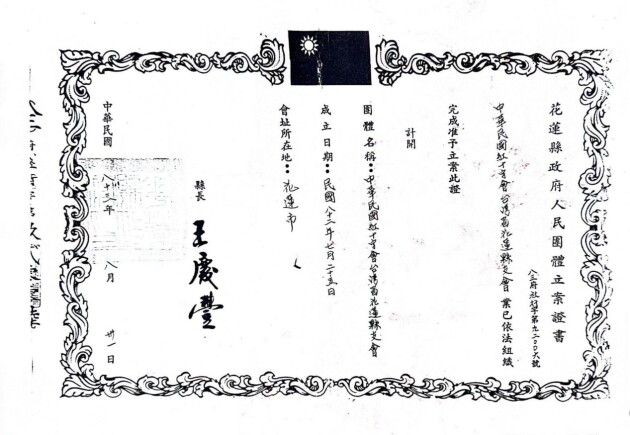 花蓮縣政府人民團體立案證書
八三府社行字第九二〇〇六號
中華民國紅十字會台灣省花蓮縣支會 業已依法組織
完成准予立案此證
計開
團體名稱：中華民國紅十字會台灣省花蓮縣支會
成立日期：民國八十三年七月二十五日
會址所在地：花蓮市
縣長 王慶豐
中華民國 八十三年 八月 卅一日